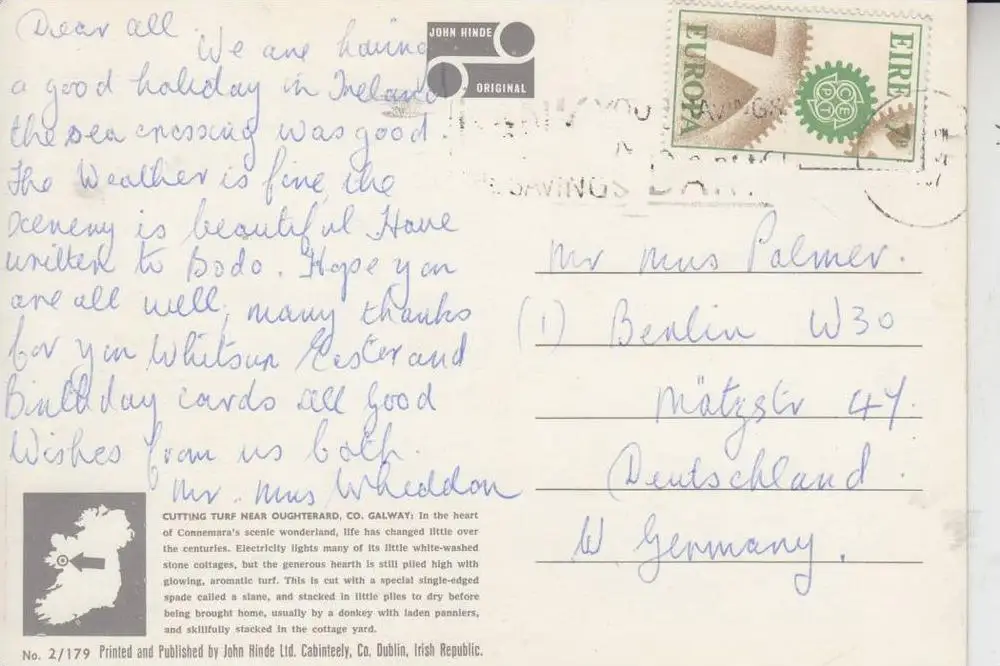 Dear all
We are having
a good holiday in Ireland
the sea crossing was good.
The Weather is fine, the
scenery is beautiful Have
written to Bodo. Hope you
are all well, many thanks
for you Whitsun Ester and
Birthday cards all Good
Wishes from us both.
Mr. Mrs Wheddon
JOHN HINDE
ORIGINAL
EUROPA
EIRE
CEPT
SAVINGS
Mr Mrs Palmer.
(1) Berlin W30
Mötzstr 47.
Deutschland.
W Germany.
CUTTING TURF NEAR OUGHTERARD, CO. GALWAY: In the heart
of Connemara's scenic wonderland, life has changed little over
the centuries. Electricity lights many of its little white-washed
stone cottages, but the generous hearth is still piled high with
glowing, aromatic turf. This is cut with a special single-edged
spade called a slane, and stacked in little piles to dry before
being brought home, usually by a donkey with laden panniers,
and skillfully stacked in the cottage yard.
No. 2/179 Printed and Published by John Hinde Ltd. Cabinteely, Co. Dublin, Irish Republic.